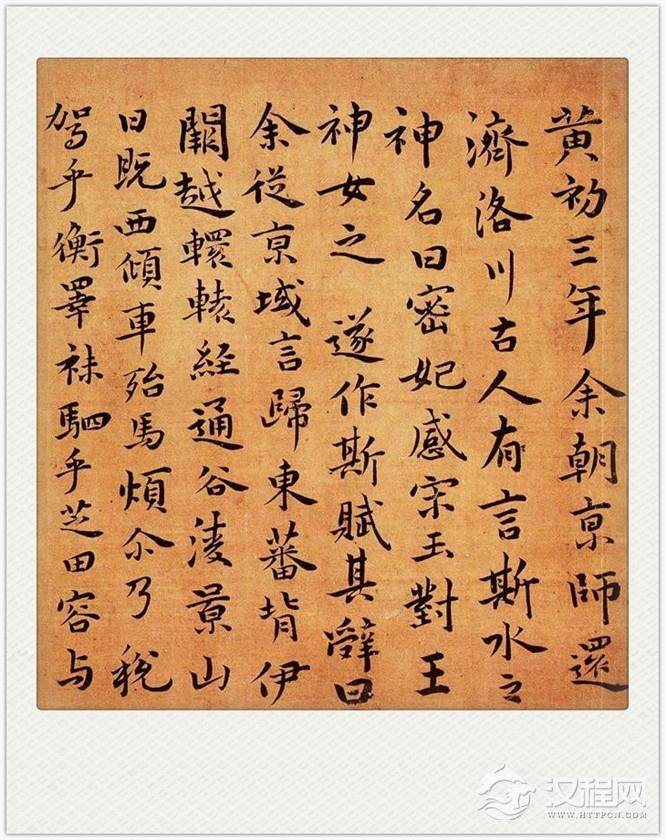 黄初三年余朝京師還
濟洛川古人有言斯水之
神名曰宓妃感宋玉對王
神女之 遂作斯賦其辭曰
余從京域言歸東藩背伊
闕越轘轅経通谷淩景山
日既西傾車殆馬煩尒乃税
駕乎蘅皋秣駟乎芝田容与
汉程网
WWW.HTTPCN.COM